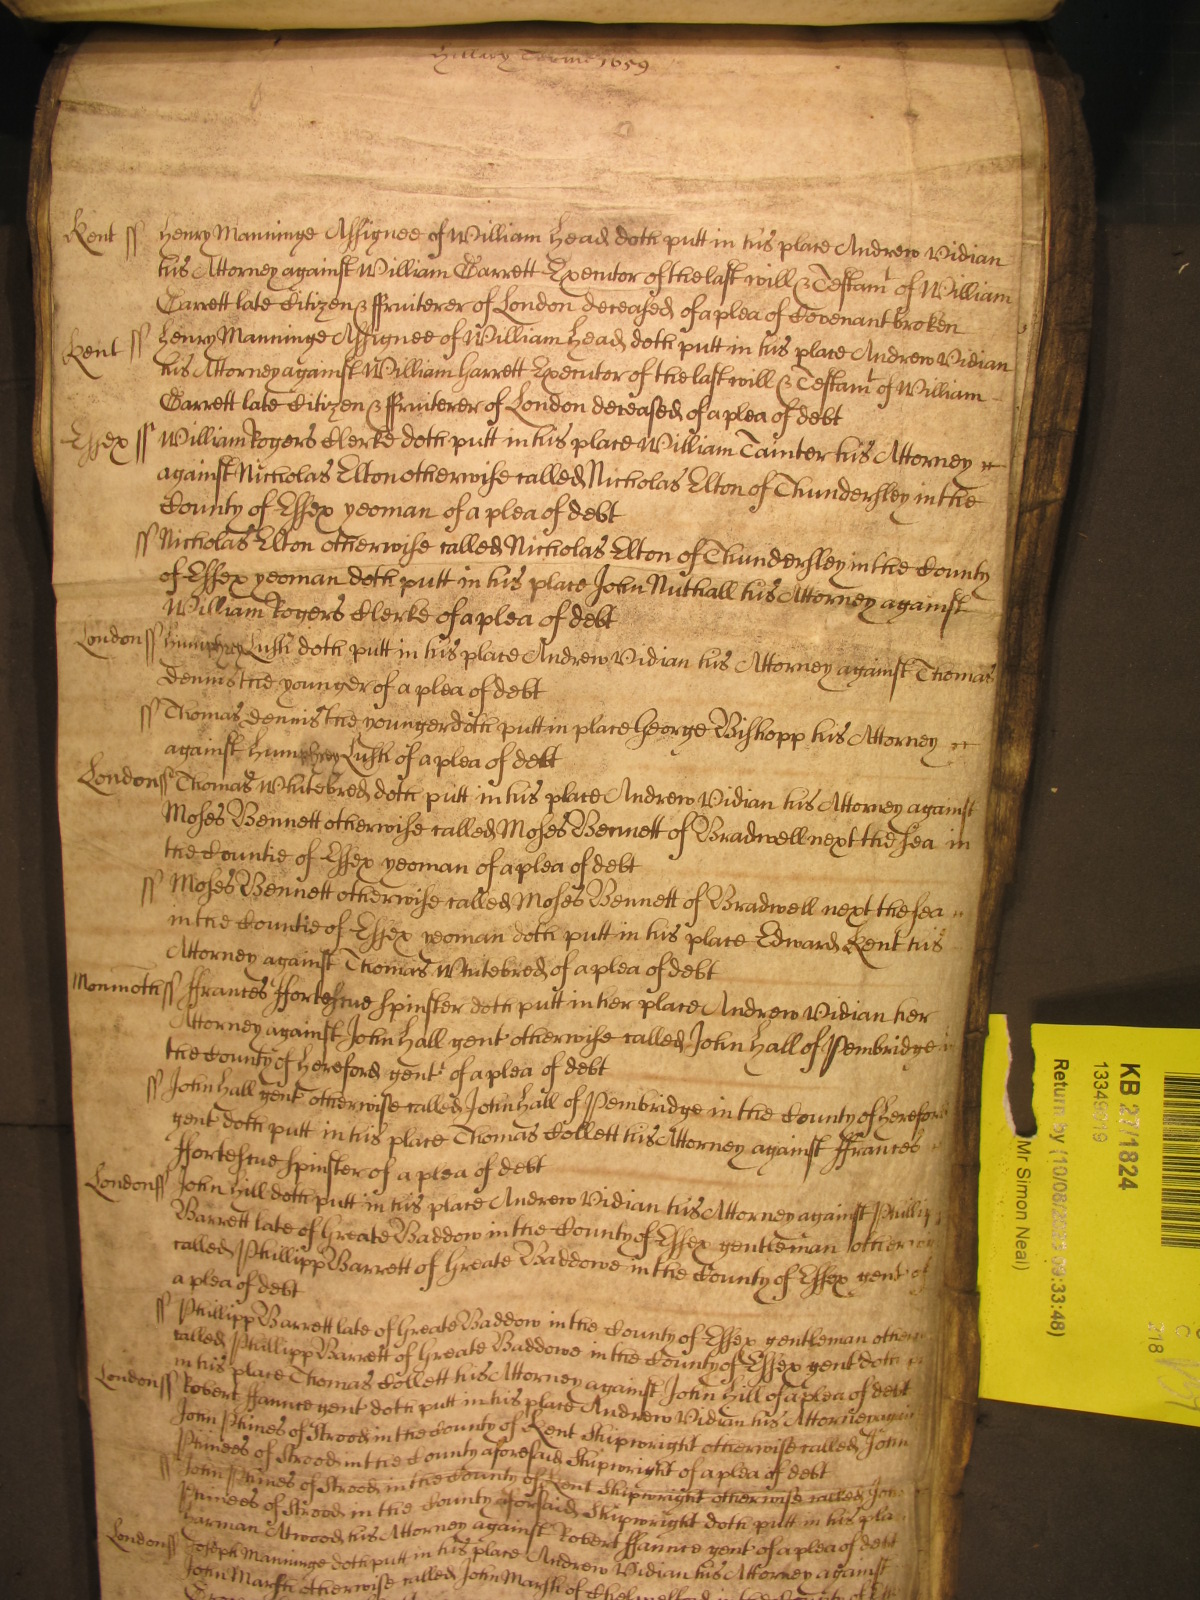 Hillary Terme 1659
Kent ss Henry Manninge Assignee of William Head doth putt in his place Andrew Vidian
his Attorney against William Garrett Executor of the last will & Testamt of William
Garrett late Citizen & ffruiterer of London deceased of a plea of Covenant broken
Kent ss Henry Manninge Assignee of William Head doth putt in his place Andrew Vidian
his Attorney against William Harrett Executor of the last will & Testamt of William
Garrett late Citizen & ffruiterer of London deceased of a plea of debt
Essex ss William Rogers Clerke doth putt in his place William Tainter his Attorney
against Nicholas Elton otherwise called Nicholas Elton of Thundersley in the
County of Essex yeoman of a plea of debt
ss Nicholas Elton otherwise called Nicholas Elton of Thundersley in the County
of Essex yeoman doth putt in his place John Nuthall his Attorney against
William Rogers Clerke of a plea of debt
London ss Humphrey Lush doth putt in his place Andrew Vidian his Attorney against Thomas
Dennis the younger of a plea of debt
ss Thomas Dennis the younger doth putt in place George Bishopp his Attorney
against Humphrey Lush of a plea of debt
London ss Thomas Whitebred doth putt in his place Andrew Vidian his Attorney against
Moses Bennett otherwise called Moses Bennett of Bradwell next the sea in
the Countie of Essex yeoman of a plea of debt
ss Moses Bennett otherwise called Moses Bennett of Bradwell next the sea
in the Countie of Essex yeoman doth putt in his place Edward Kent his
Attorney against Thomas Whitebred of a plea of debt
Monmoth ss ffrances ffortescue spinster doth putt in her place Andrew Vidian her
Attorney against John Hall gent otherwise called John Hall of Pembridge
the County of Hereford gent of a plea of debt
ss John Hall gent otherwise called John Hall of Pembridge in the County of Hereford
gent doth putt in his place Thomas Collett his Attorney against ffrances
ffortescue spinster of a plea of debt
London ss John Hill doth putt in his place Andrew Vidian his Attorney against Phillip
Barrett late of Greate Baddow in the County of Essex gentleman otherw
called Phillipp Barrett of Greate Baddowe in the County of Essex gent of
a plea of debt
ss Phillipp Barrett late of Greate Baddow in the County of Essex gentleman otherw
called Phillipp Barrett of Greate Baddowe in the County of Essex gent doth
in his place Thomas Collett his Attorney against John Hill of a plea of debt
London ss Robert ffannce gent doth putt in his place Andrew Vidian his Attorney again
John Phines of Strood in the County of Kent Shipwright otherwise called John
Phinees of Strood in the County aforesaid Shipwright of a plea of debt
ss John Phines of Strood in the County of Kent Shipwright otherwise called John
Phinees of Strood in the County aforesaid Shipwright doth putt in his pla
Harman Atwood his Attorney against Robert ffannce gent of a plea of debt
London ss Joseph Manninge doth putt in his place Andrew Vidian his Attorney against
John Marsh otherwise called John Marsh of Chelmesford in the County of
KB 27/1824
13349919
Return by (10/08/2023 09:33:48)
Mr Simon Neal)
218